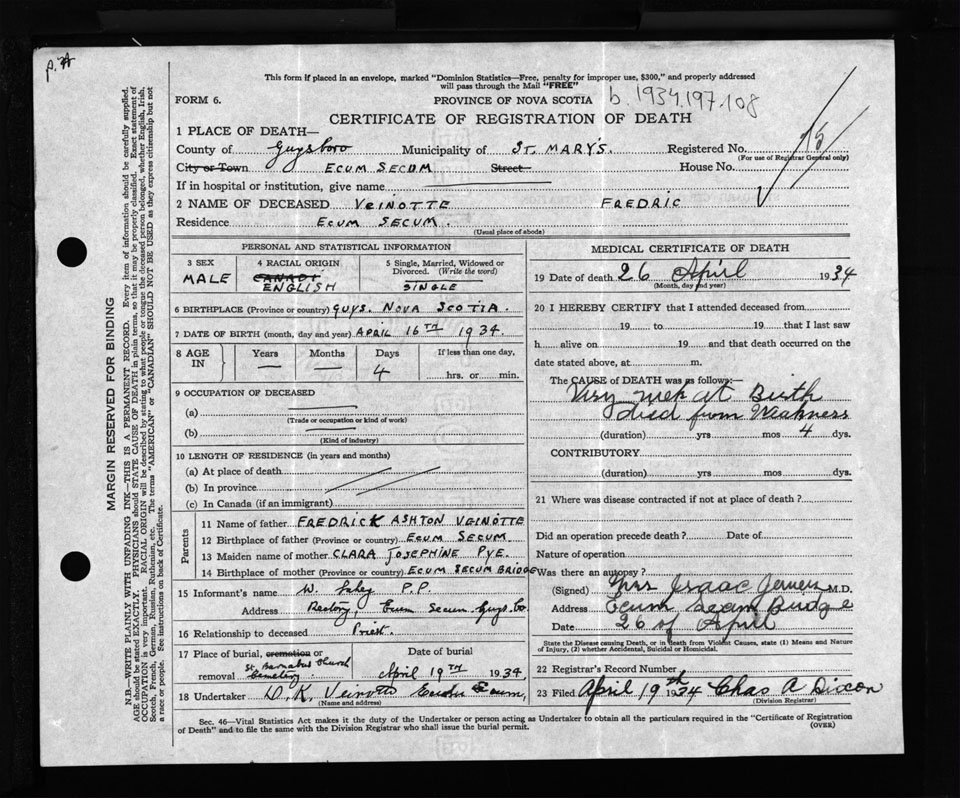 This form if placed in an envelope, marked "Dominion Statistics—Free, penalty for improper use, $300," and properly addressed
will pass through the Mail "FREE"
FORM 6. PROVINCE OF NOVA SCOTIA b.1934.197.108
CERTIFICATE OF REGISTRATION OF DEATH
1 PLACE OF DEATH—
County of Guysboro Municipality of ST. MARY'S. Registered No.
(For use of Registrar General only)
City or Town ECUM SECUM Street House No.
If in hospital or institution, give name
2 NAME OF DECEASED VEINOTTE FREDRIC
Residence ECUM SECUM.
(Usual place of abode)
PERSONAL AND STATISTICAL INFORMATION
3 SEX 4 RACIAL ORIGIN 5 Single, Married, Widowed or Divorced. (Write the word)
MALE CANADI ENGLISH SINGLE
6 BIRTHPLACE (Province or country) GUYS. NOVA SCOTIA.
7 DATE OF BIRTH (month, day and year) APRIL 16TH 1934.
8 AGE IN Years Months Days If less than one day,
— — 4 hrs. or min.
9 OCCUPATION OF DECEASED
(a)
(Trade or occupation or kind of work)
(b)
(Kind of industry)
10 LENGTH OF RESIDENCE (in years and months)
(a) At place of death
(b) In province
(c) In Canada (if an immigrant)
Parents
11 Name of father FREDRICK ASHTON VEINOTTE
12 Birthplace of father (Province or country) ECUM SECUM.
13 Maiden name of mother CLARA JOSEPHINE PYE.
14 Birthplace of mother (Province or country) ECUM SECUM BRIDGE
15 Informant's name W. P.P.
Address Rectory, Ecum Secum Guys. Co.
16 Relationship to deceased Priest.
17 Place of burial, cremation or removal Date of burial
St. Barnabas Church Cemetery April 19TH 1934.
18 Undertaker D. K. Veinotte Ecum Secum,
(Name and address)
MEDICAL CERTIFICATE OF DEATH
19 Date of death 26 April 1934
(Month, day and year)
20 I HEREBY CERTIFY that I attended deceased from
19 to 19 that I last saw
h alive on 19 and that death occurred on the
date stated above, at m.
The CAUSE of DEATH was as follows:—
Very weak at Birth
died from Weakness
(duration) yrs mos 4 dys.
CONTRIBUTORY
(duration) yrs. mos. dys.
21 Where was disease contracted if not at place of death?
Did an operation precede death? Date of
Nature of operation
Was there an autopsy?
(Signed) Mrs Isaac M.D.
Address Ecum Secum Bridge
Date 26 of April
State the Disease causing Death, or in death from Violent Causes, state (1) Means and Nature
of Injury, (2) whether Accidental, Suicidal or Homicidal.
22 Registrar's Record Number
23 Filed April 19th 1934 Chas A Dixon
(Division Registrar)
Sec. 46—Vital Statistics Act makes it the duty of the Undertaker or person acting as Undertaker to obtain all the particulars required in the "Certificate of Registration
of Death" and to file the same with the Division Registrar who shall issue the burial permit. (OVER)
MARGIN RESERVED FOR BINDING
N.B.—WRITE PLAINLY WITH UNFADING INK—THIS IS A PERMANENT RECORD. Every item of information should be carefully supplied.
AGE should be stated EXACTLY. PHYSICIANS should STATE CAUSE OF DEATH in plain terms, so that it may be properly classified. Exact statement of
OCCUPATION is very important. RACIAL ORIGIN will be described by stating to what people or tongue the deceased person belonged, whether English, Irish,
Scotch, French, German, Russian, Ruthenian, etc. The terms "AMERICAN" or "CANADIAN" SHOULD NOT BE USED as they express citizenship but not
a race or people. See instructions on back of Certificate.